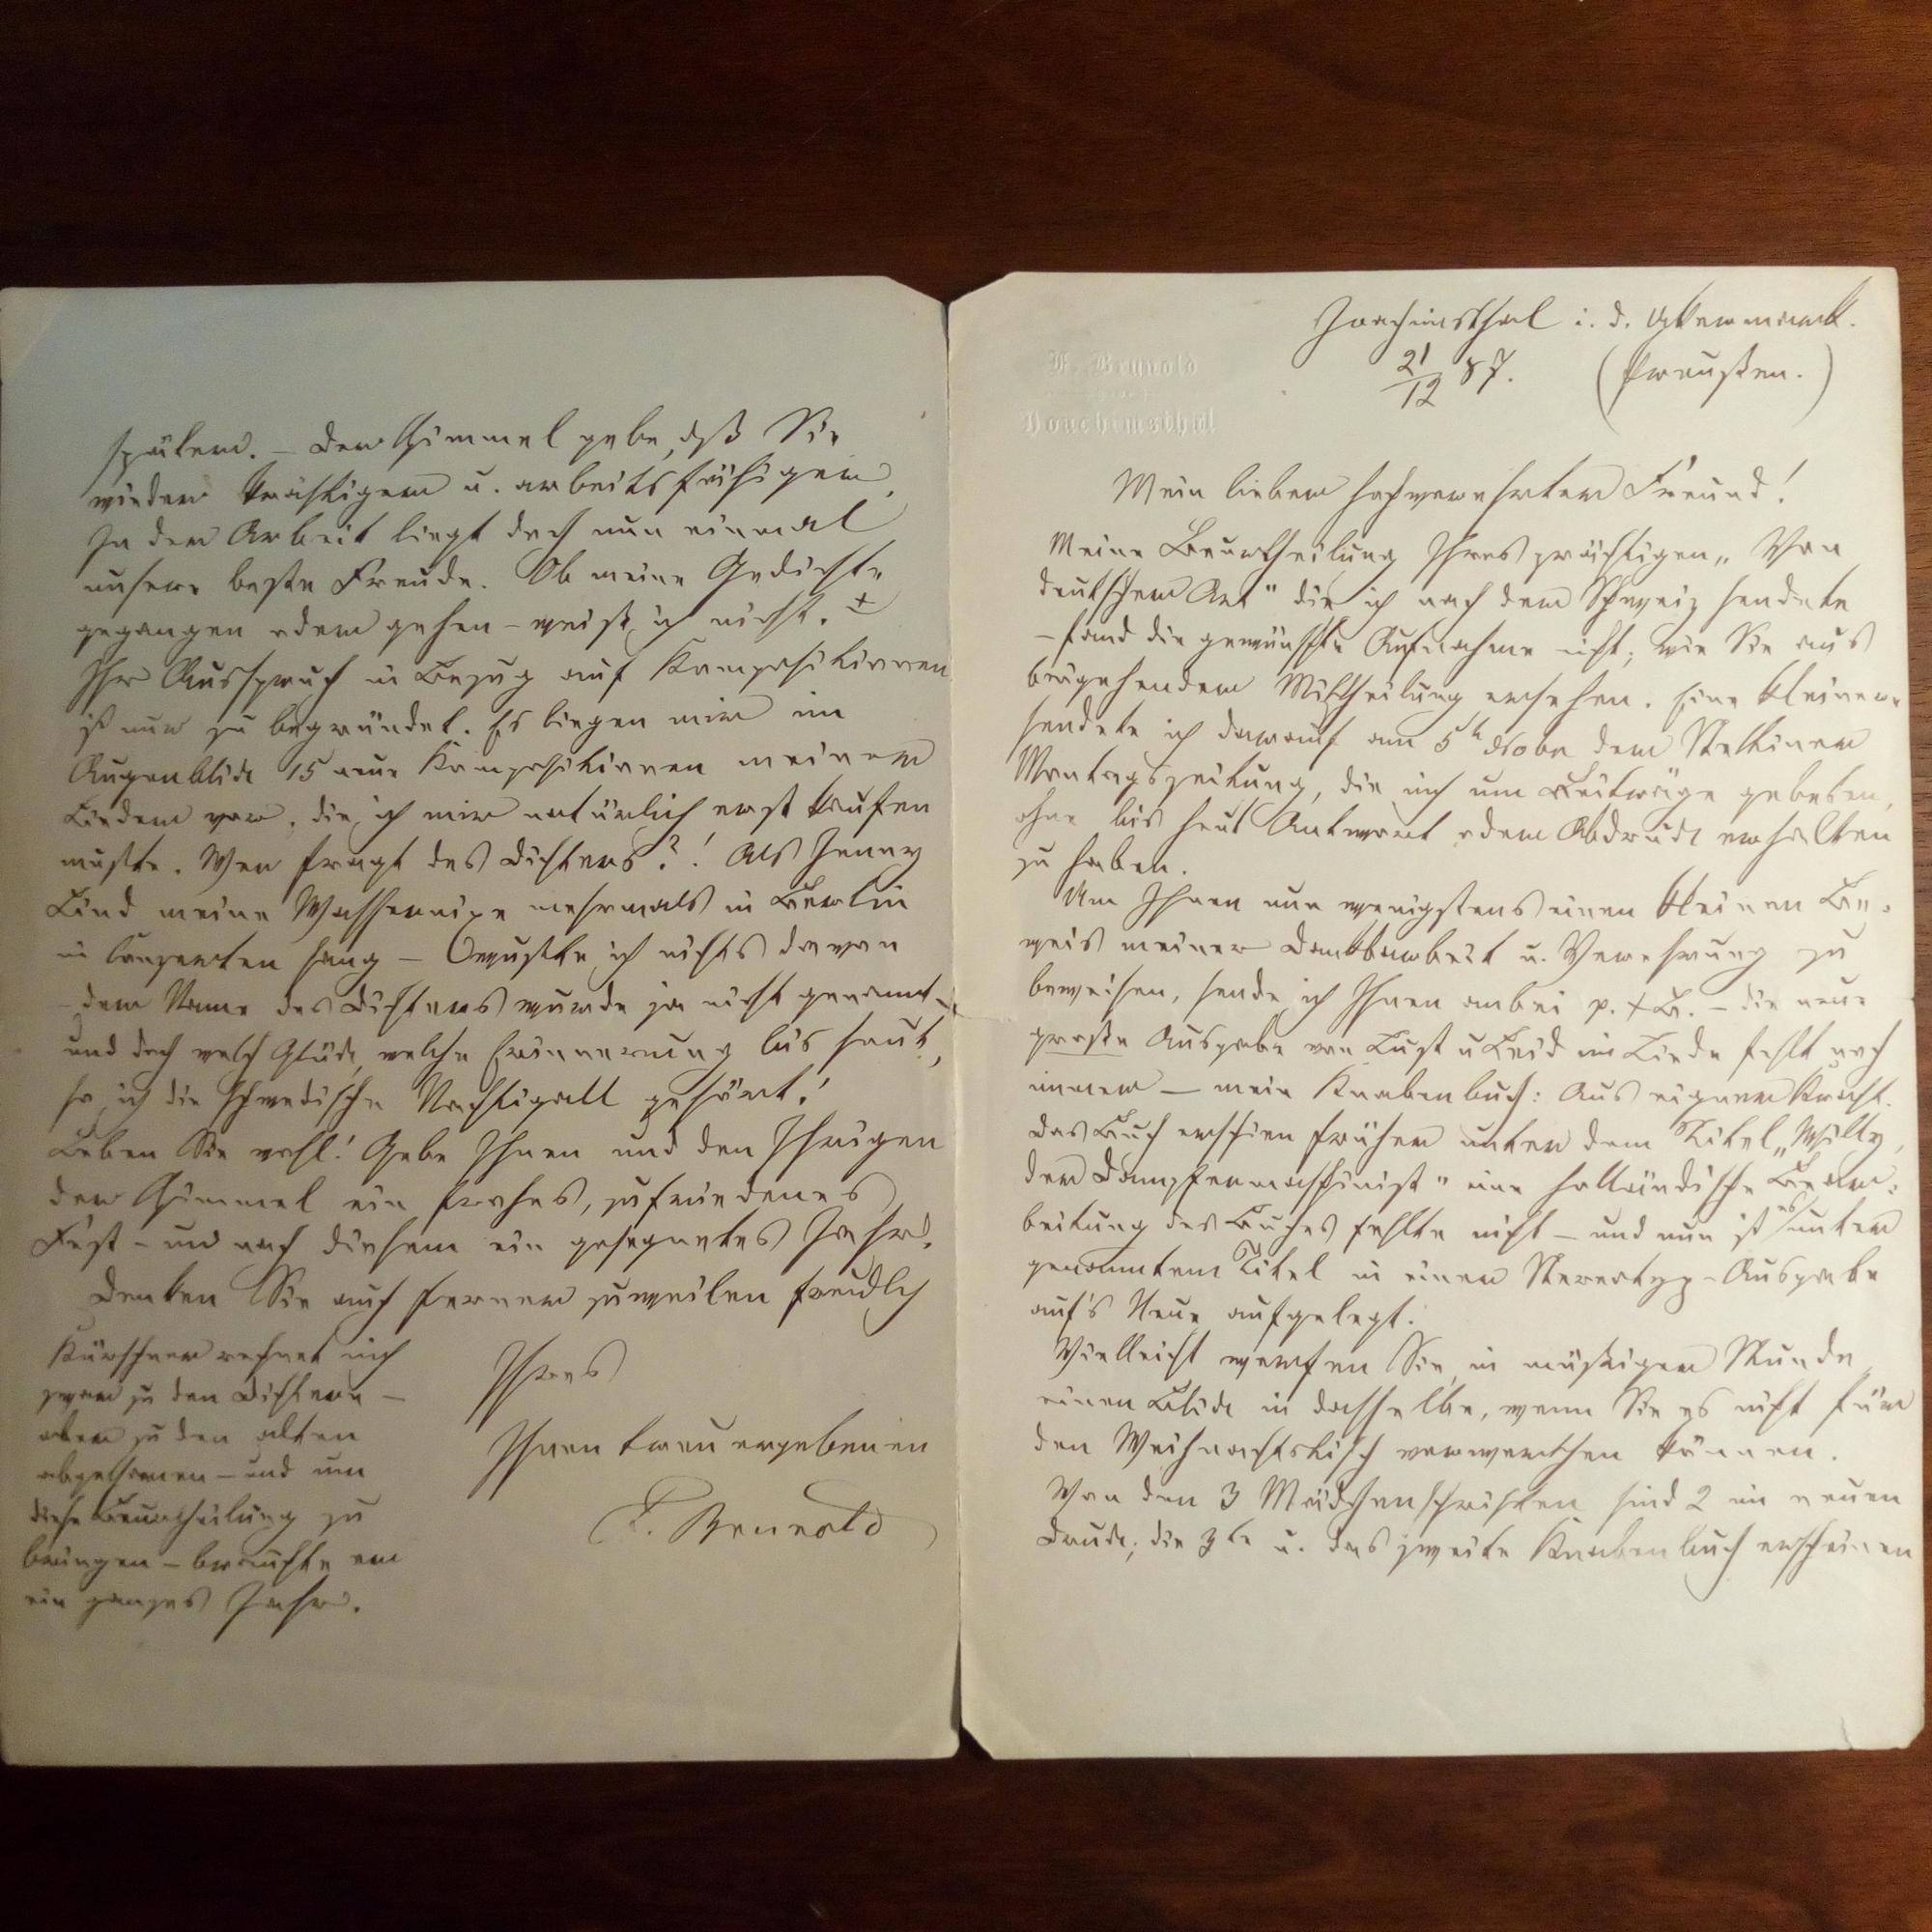 F. Brunold
Joachimsthal
Joachimsthal i. d. Ukermark.
21/12 87. (Preußen.)
Mein lieber hochverehrter Freund!
Meine Beurtheilung Ihres prächtigen „Von
deutscher Art" die ich nach der Schweiz sendete
– fand die gewünschte Aufnahme nicht; wie Sie aus
beigehender Mittheilung ersehen. Eine kleinere
sendete ich darauf am 5t der Stettiner
Montagszeitung, die mich um Beiträge gebeten,
ohne bis heut Antwort oder Abdruck erhalten
zu haben.
Um Ihnen nun wenigstens einen kleinen Be-
weis meiner Dankbarkeit u. Verehrung zu
beweisen, sende ich Ihnen anbei p. +B. – die neue
große Ausgabe von Lust u Leid im Liede fehlt noch
immer – mein Knabenbuch: Aus eigner Kraft.
Das Buch erschien früher unter dem Titel „Willy,
der Dampfermaschinist" eine holländische Bear-
beitung des Buches fehlte nicht – und nun ist es unter
genanntem Titel in einer Stereotyp-Ausgabe
auf's Neue aufgelegt.
Vielleicht werfen Sie in müßiger Stunde
einen Blick in dasselbe, wenn Sie es nicht für
den Weihnachtstisch verwerthen können.
Von den 3 Mädchenschriften sind 2 im neuen
Druck; die 3te u. das zweite Knabenbuch erscheinen
später. – Der Himmel gebe, dß Sie
wieder kräftiger u. arbeitsfähiger.
In der Arbeit liegt doch nun einmal
unsere beste Freude. Ob meine Gedichte
gegangen oder gehen – weiß ich nicht. +
Ihr Ausspruch in Bezug auf Kompositionen
ist nur zu begründet. Es liegen mir im
Augenblick 15 neue Kompositionen meiner
Lieder vor, die ich mir natürlich erst kaufen
mußte. Wer fragt des Dichters?! Als Jenny
Lind meine Wassernixe mehrmals in Berlin
in Conzerten sang – wußte ich nichts davon
– der Name des Dichters wurde ja nicht genannt –
und doch welch Glück, welche Erinnerung bis heut,
so ich die schwedische Nachtigall gehört!
Leben Sie wohl! Gebe Ihnen und den Ihrigen
der Himmel ein frohes, zufriedenes
Fest – und nach diesem ein gesegnetes Jahr.
Denken Sie auch ferner zuweilen freundlich
Ihres
Ihnen treu ergebenen
F. Brunold
Kürschner rechnet mich
zwar zu den Dichtern –
aber zu den alten
abgethanen – und um
diese Beurtheilung zu
bringen – brauchte er
ein ganzes Jahr.